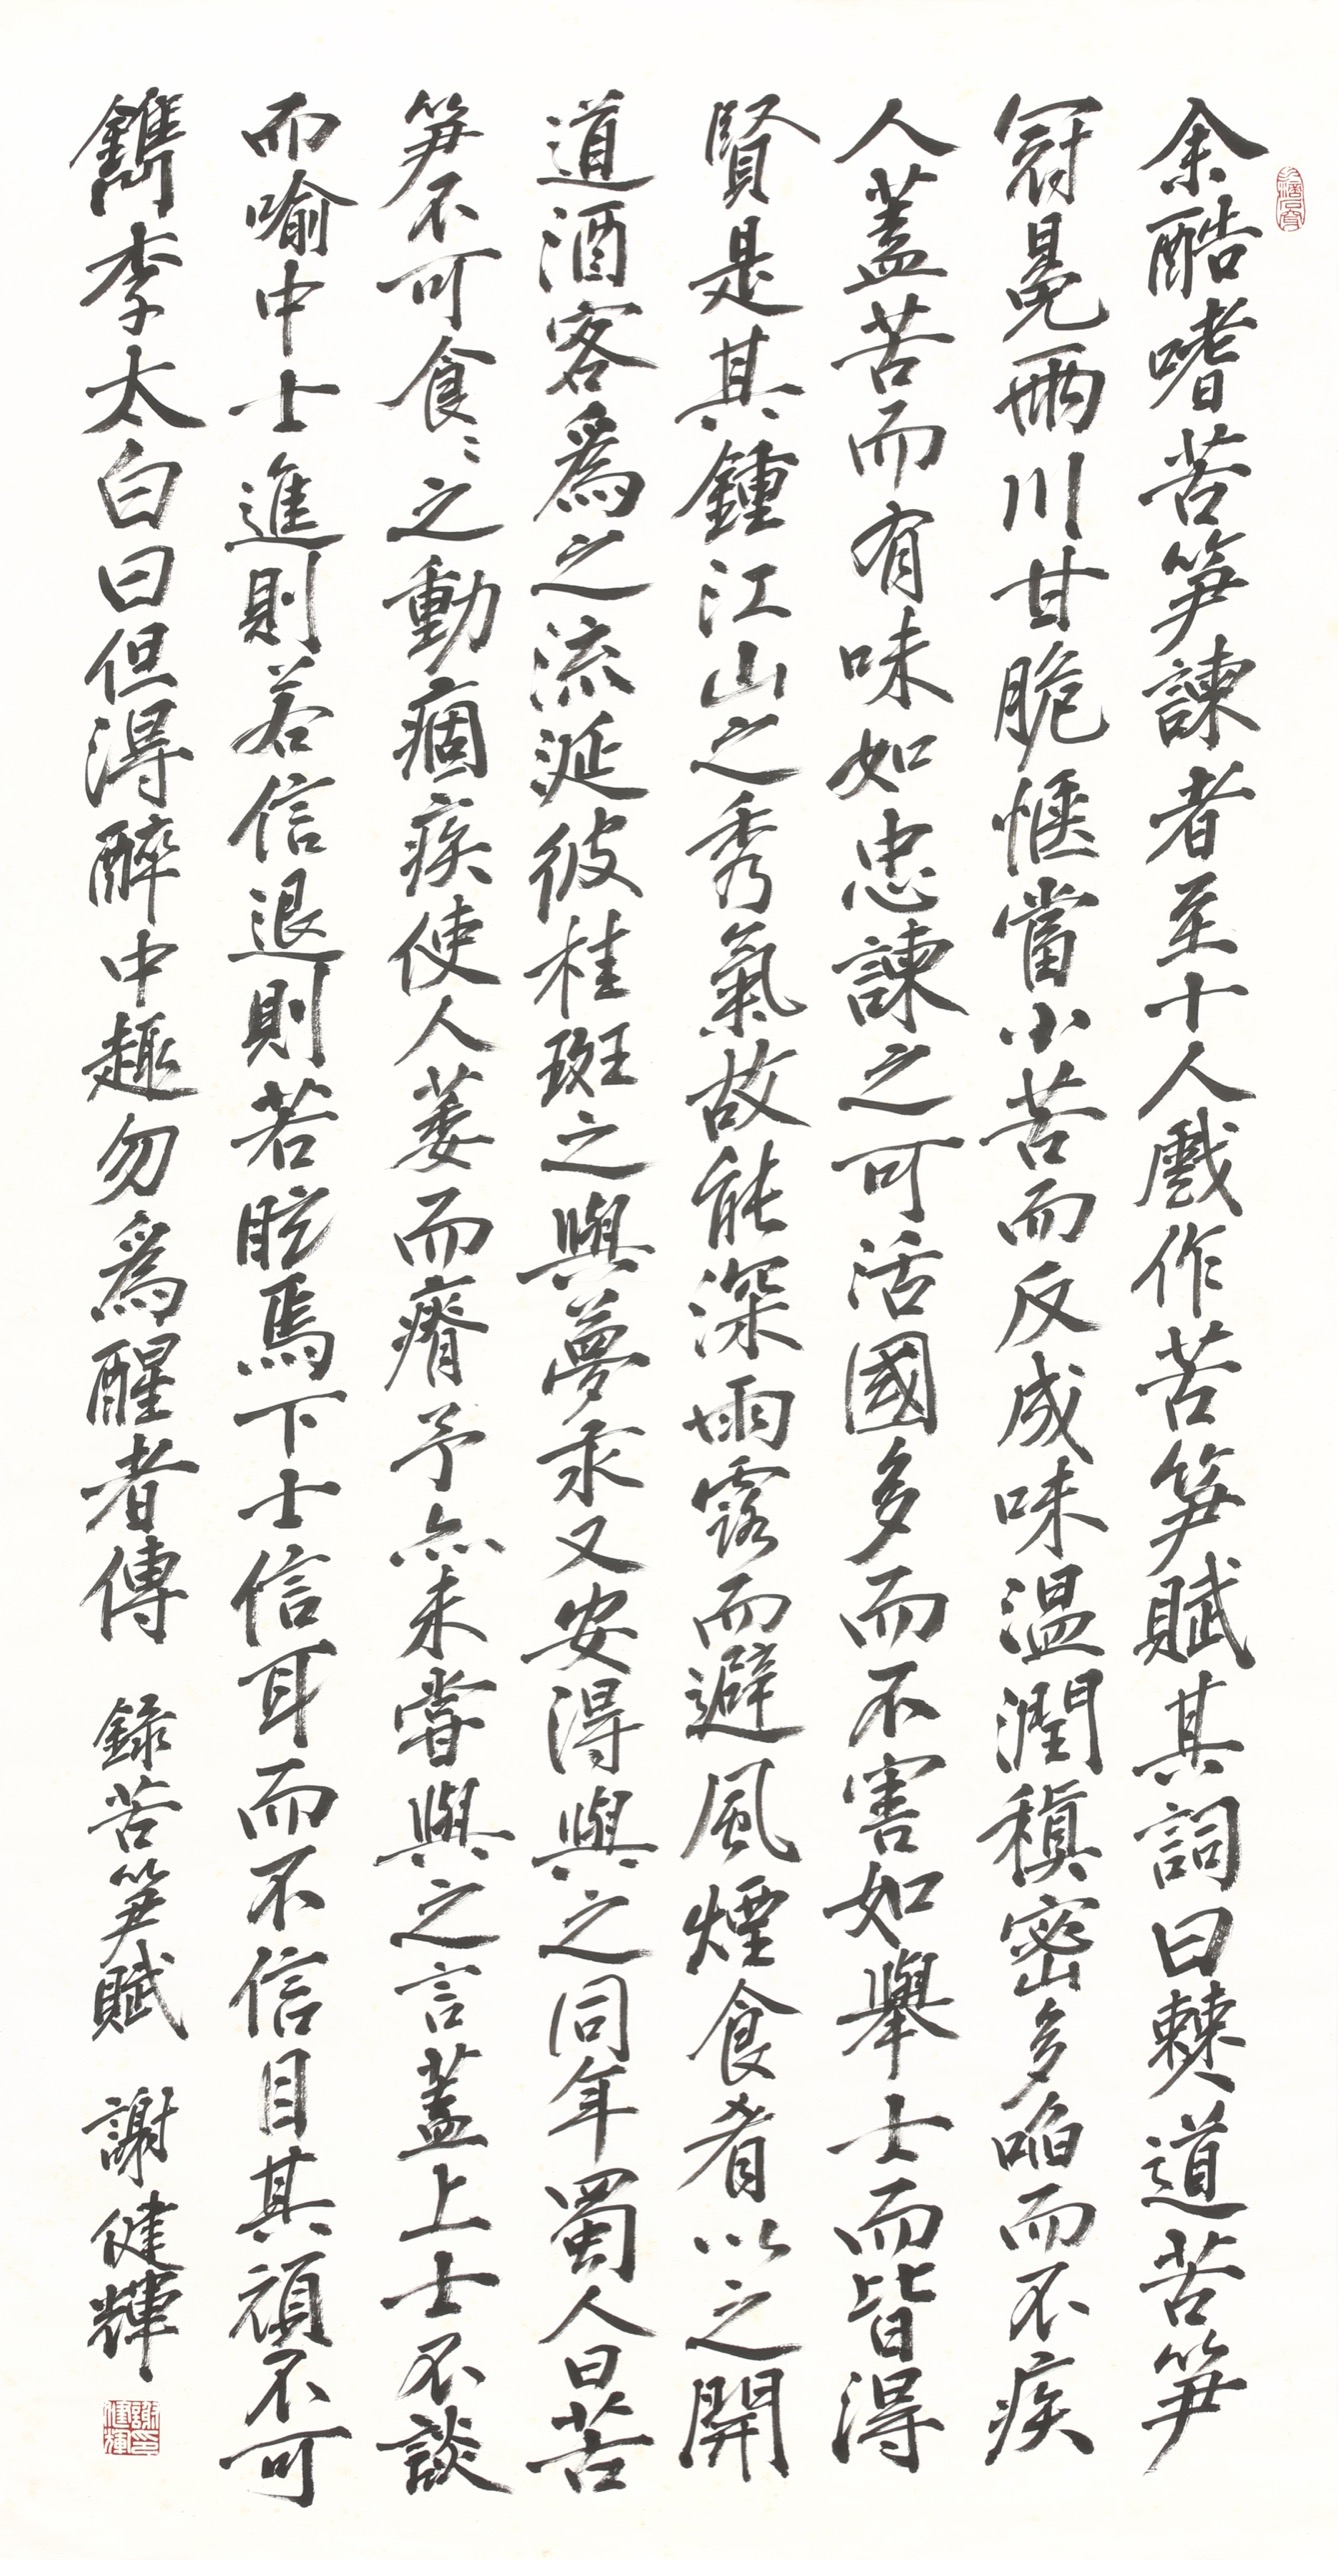 余酷嗜苦笋諫者至十人戲作苦笋賦其詞曰僰道苦笋
冠冕兩川甘脆愜當小苦而反成味溫潤稹密多啗而不疾
人蓋苦而有味如忠諫之可活國多而不害如舉士而皆得
賢是其鍾江山之秀氣故能深雨露而避風煙食肴以之開
道酒客為之流涎彼桂斑之與夢汞又安得與之同年蜀人曰苦
笋不可食〻之動痼疾使人萎而瘠予亦未嘗與之言蓋上士不談
而喻中士進則若信退則若眩焉下士信耳而不信目其頑不可
鐫李太白曰但得醉中趣勿為醒者傳 錄苦笋賦 謝健輝
謝健輝印